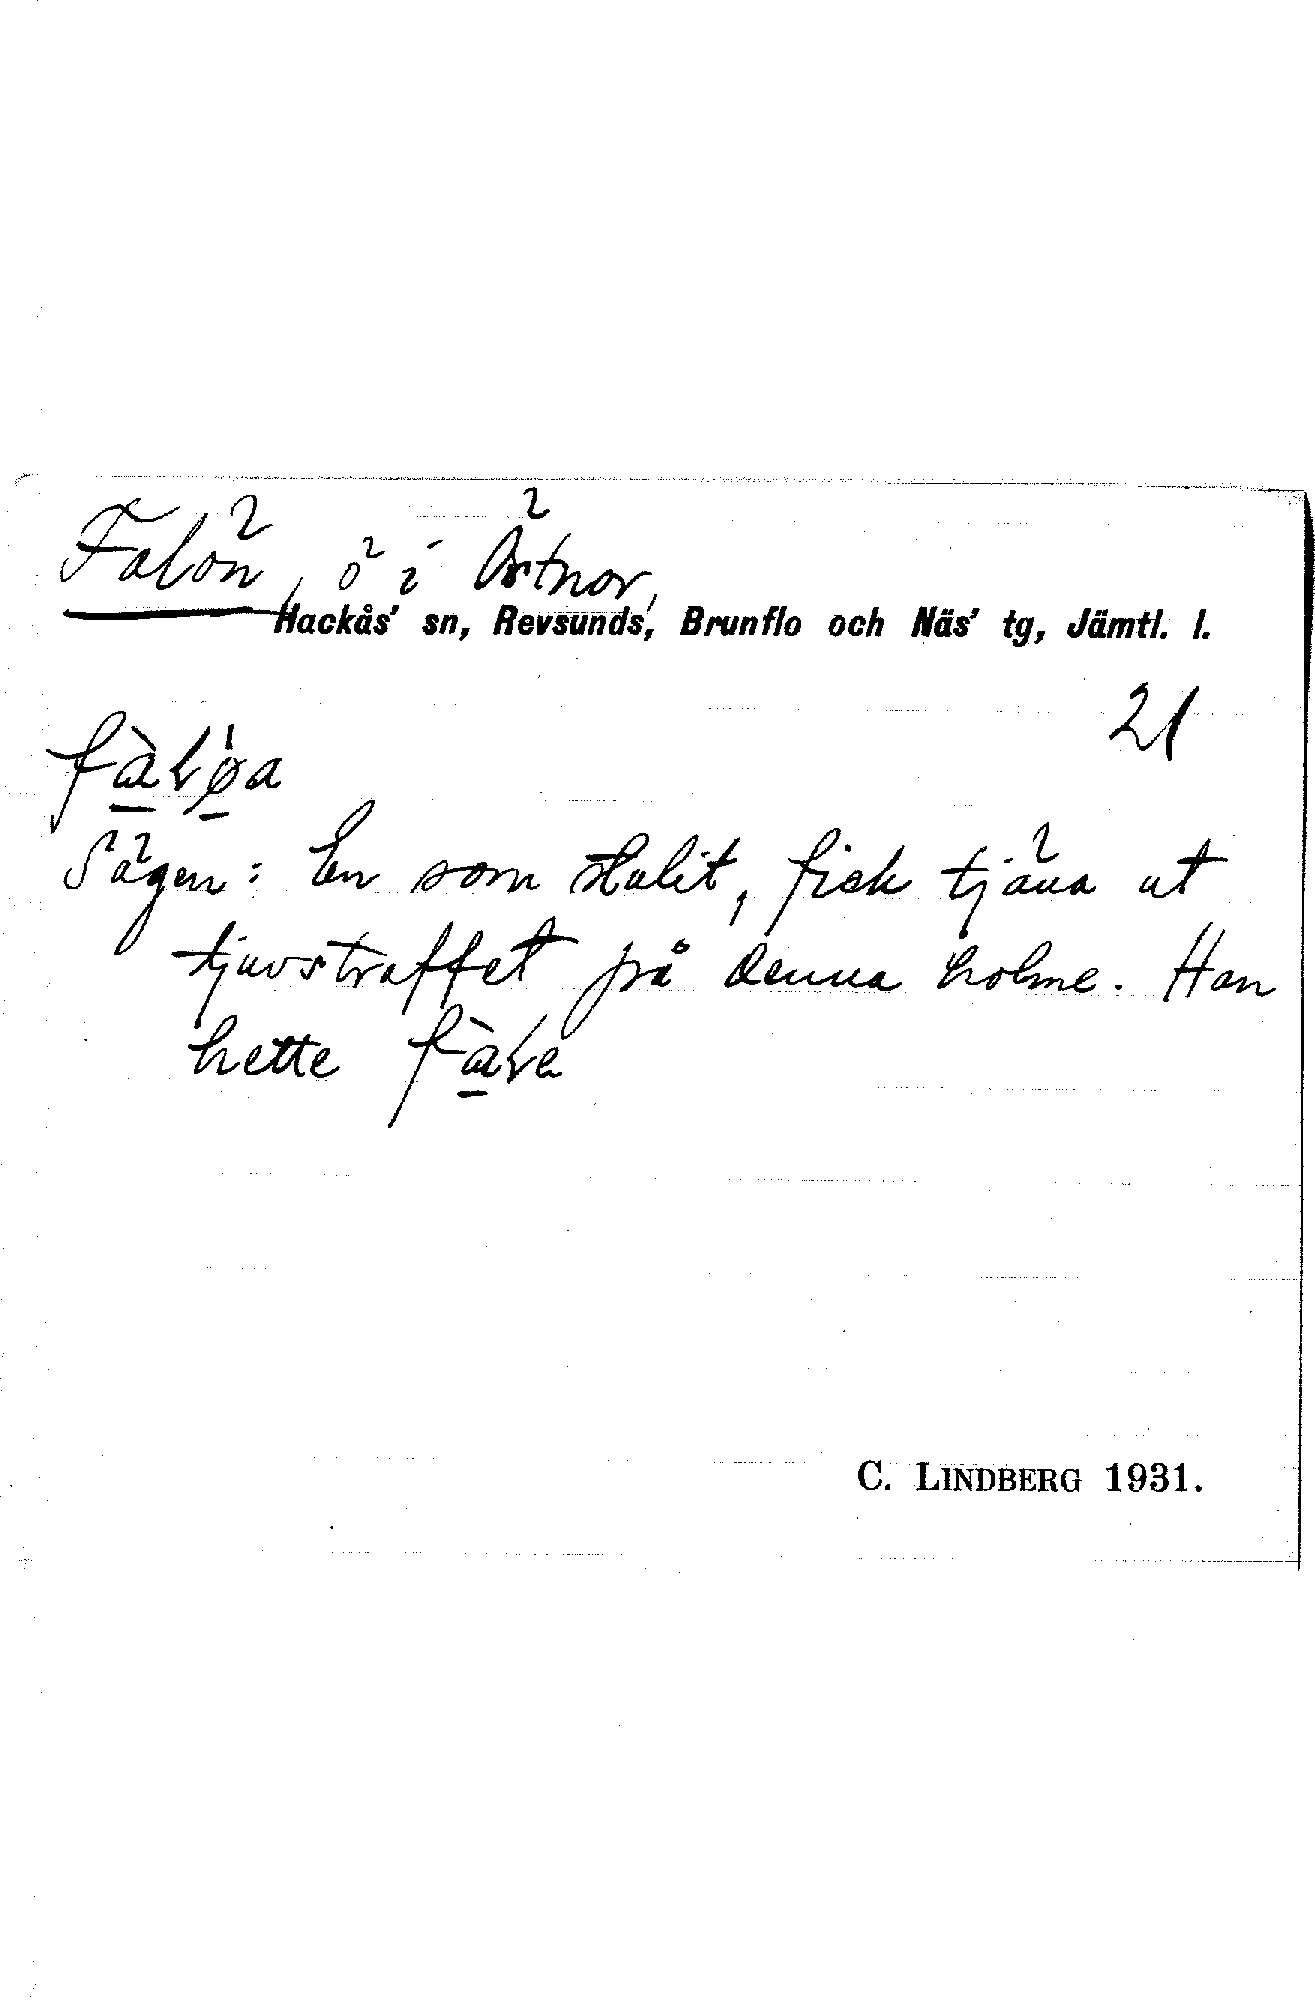 Falön, ö i Östnor,
Hackås' sn, Revsunds, Brunflo och Näs' tg, Jämtl. l.
21
Sägen: En som stulit, fick tjäna ut
tjuvstraffet på denna holme. Han
hette
C. LINDBERG 1931.